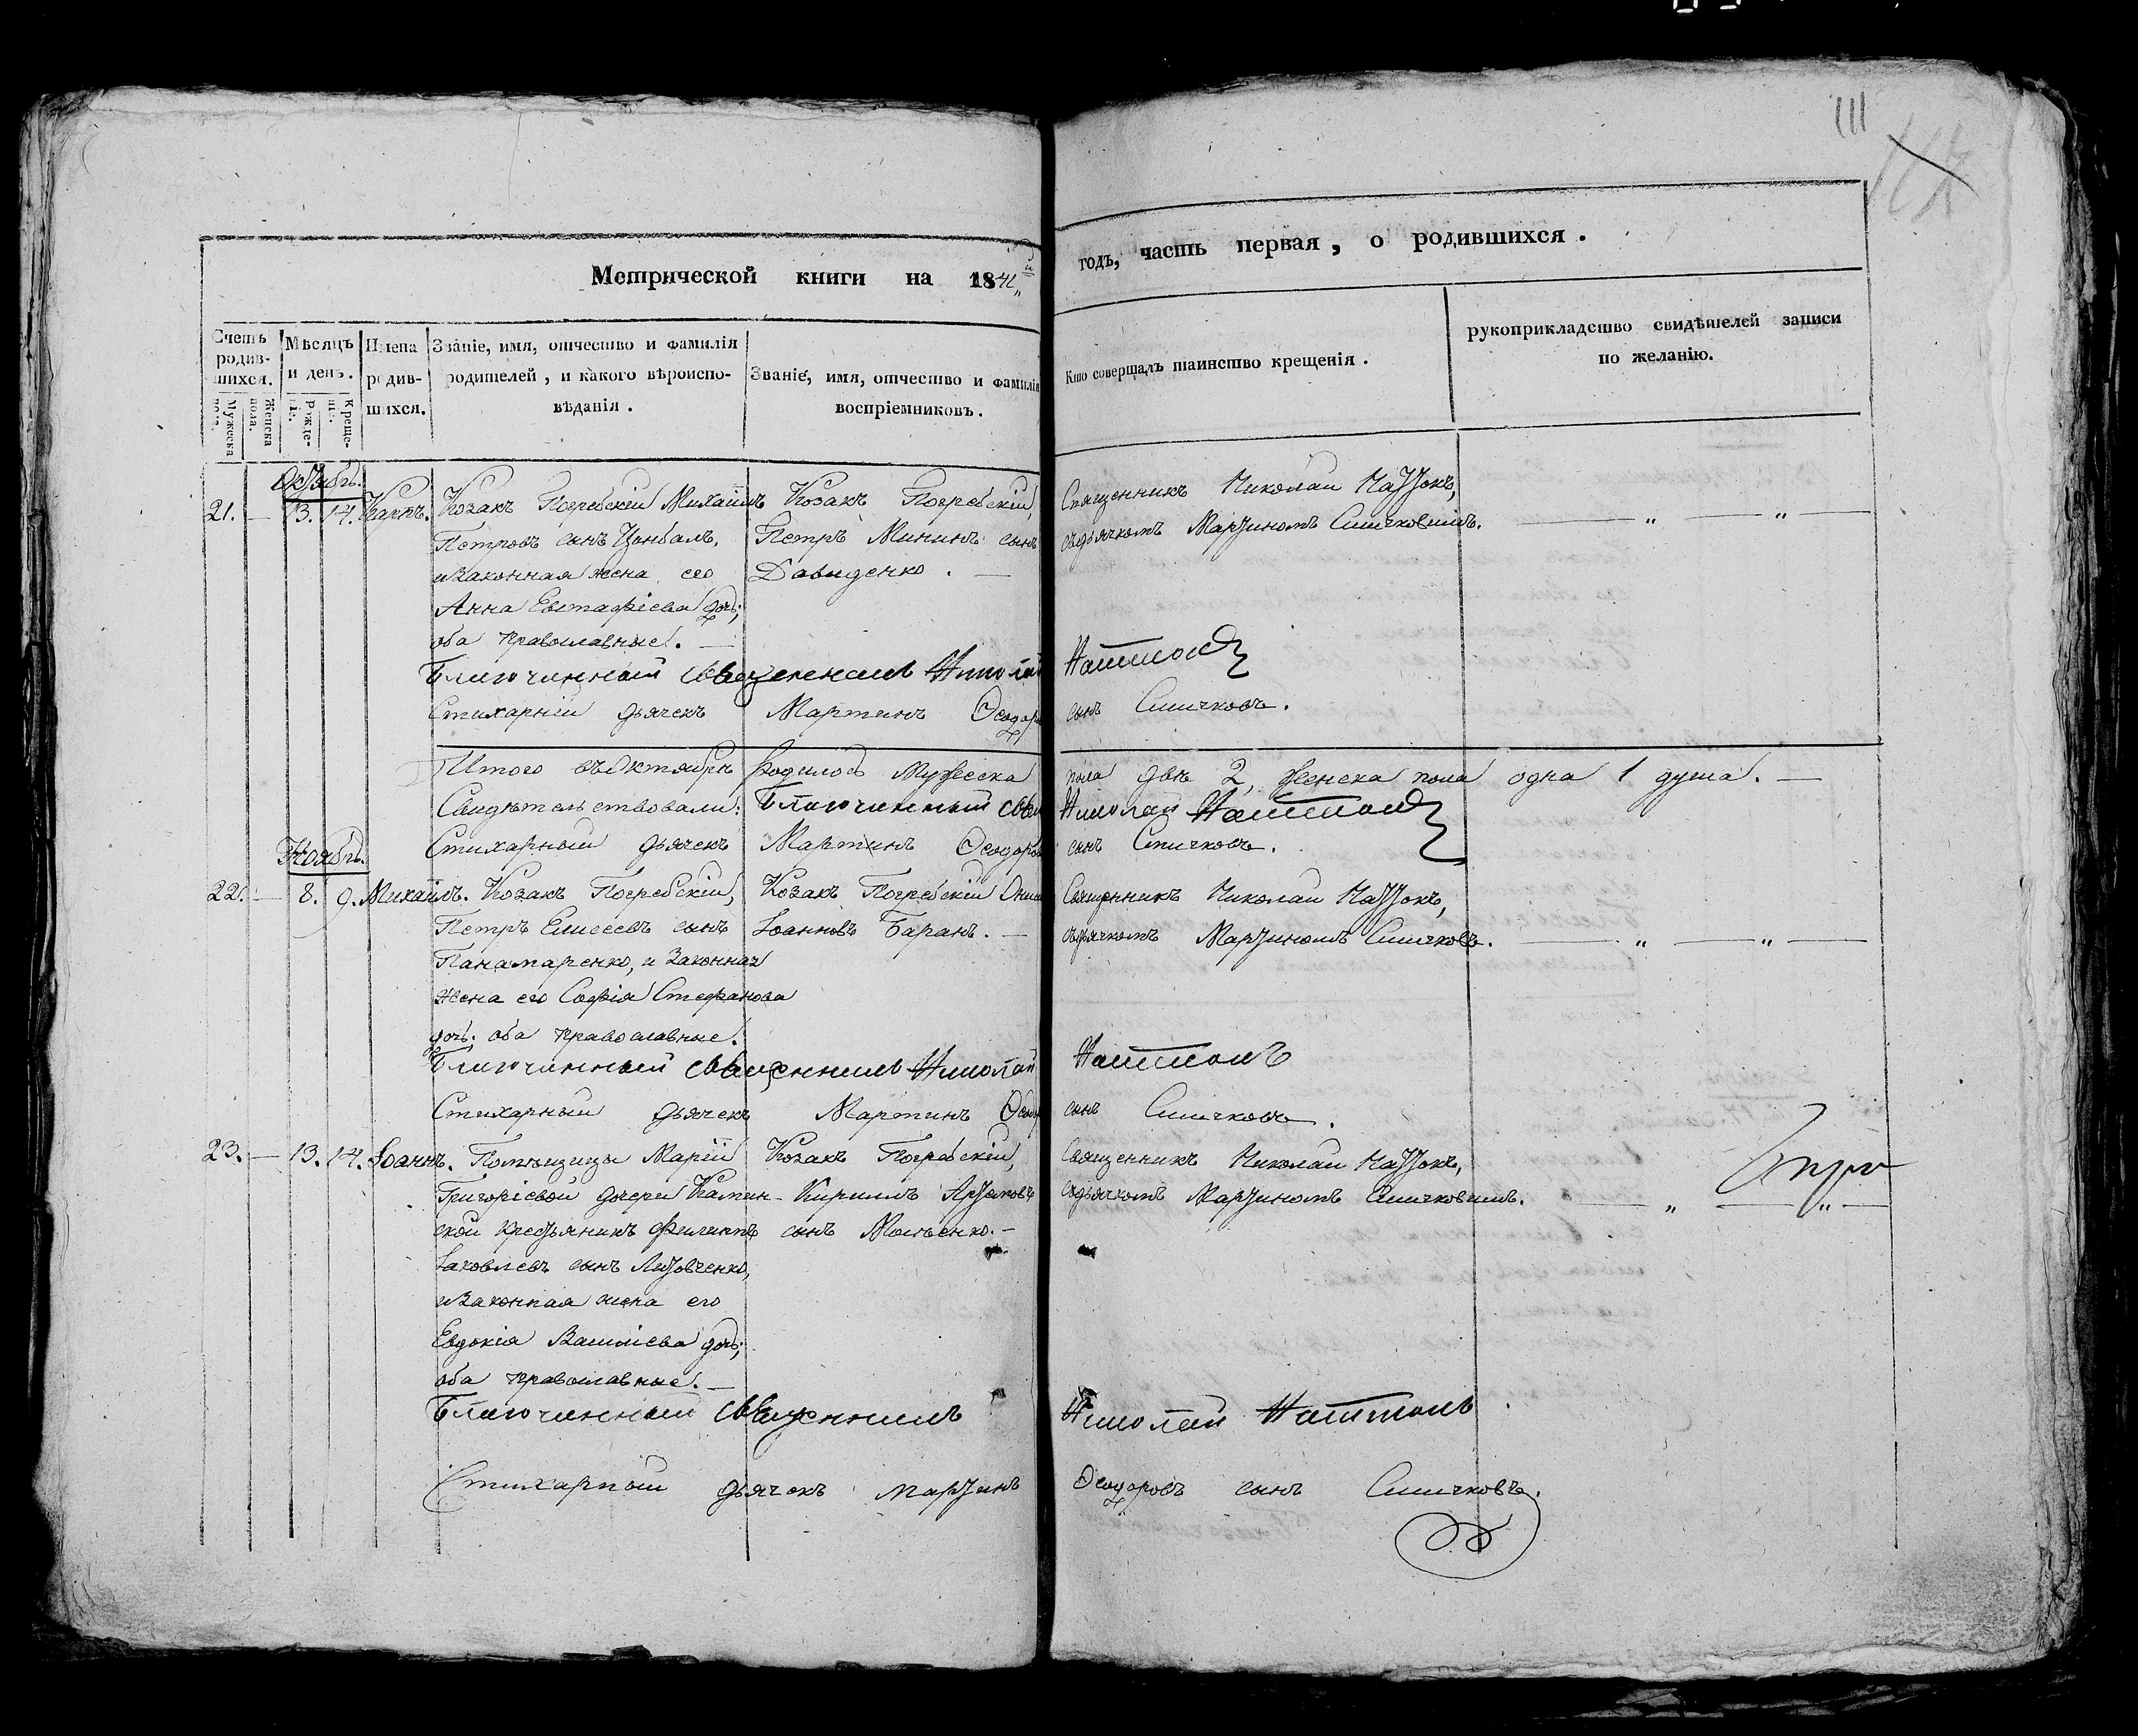 111
Метрической книги на 1841й
годъ, часть первая, о родившихся.
Счетъ родив-шихся.
Мужеска пола.
Женска пола.
Мѣсяцъ и день.
Рожде-нія.
Креще-нія.
Имена родив-шихся.
Званіе, имя, отчество и фамилія
родителей, и какого вѣроиспо-
вѣданія.
Званіе, имя, отчество и фамилія
воспріемниковъ.
Кто совершалъ таинство крещенія.
рукоприкладство свидѣтелей записи
по желанію.
Октябрь.
21. — 13. 14. Карпъ.
Козакъ Погребскій Михаилъ
Петровъ сынъ Цымбалъ,
и законная жена его
Анна Евстафіева дочь;
оба православные. —
Козакъ Погребскій,
Петръ Мининъ сынъ
Давиденко. —
Священникъ Николай Наттокъ,
съ дьячкомъ Мартиномъ Синчковимъ. — „ — „ —
Благочинный священникъ Николай Наттокъ
Стихарній дьячекъ Мартинъ Ѳеодоровъ сынъ Синчковъ.
Итого въ Октябрѣ родилось Мужеска пола двѣ 2, женска пола одна 1 душа. —
Свидѣтельствовали: Благочинный свящ Николай Наттокъ
Стихарный дьячекъ Мартинъ Ѳеодоровъ сынъ Синчковъ.
Ноябрь.
22. — 8. 9. Михаилъ.
Козакъ Погребскій,
Петръ Елисеевъ сынъ
Панамаренко, и законная
жена его Софія Стефанова
дочь; оба православные.
Козакъ Погребскій
Іоанновъ Баранъ. —
Священникъ Николай Наттокъ,
съ дьячкомъ Мартиномъ Синчковъ. — „ — „ —
Благочинный священникъ Николай Наттокъ
Стихарный дьячекъ Мартинъ Ѳеодоровъ сынъ Синчковъ.
23. — 13. 14. Іоаннъ.
Помѣщицы Маріи
Григоріевой дочери Камин-
ской крестьянинъ Филиппъ
Іаковлевъ сынъ Литовченко,
и законная жена его
Евдокія Василіева дочь;
оба православные. —
Козакъ Погребскій,
Кирилъ Артемовъ
сынъ Моисѣенко. —
Священникъ Николай Наттокъ,
съ дьячкомъ Мартиномъ Синчковимъ. — „ — „ —
Благочинный священникъ Николай Наттокъ
Стихарный дьячекъ Мартинъ Ѳеодоровъ сынъ Синчковъ.